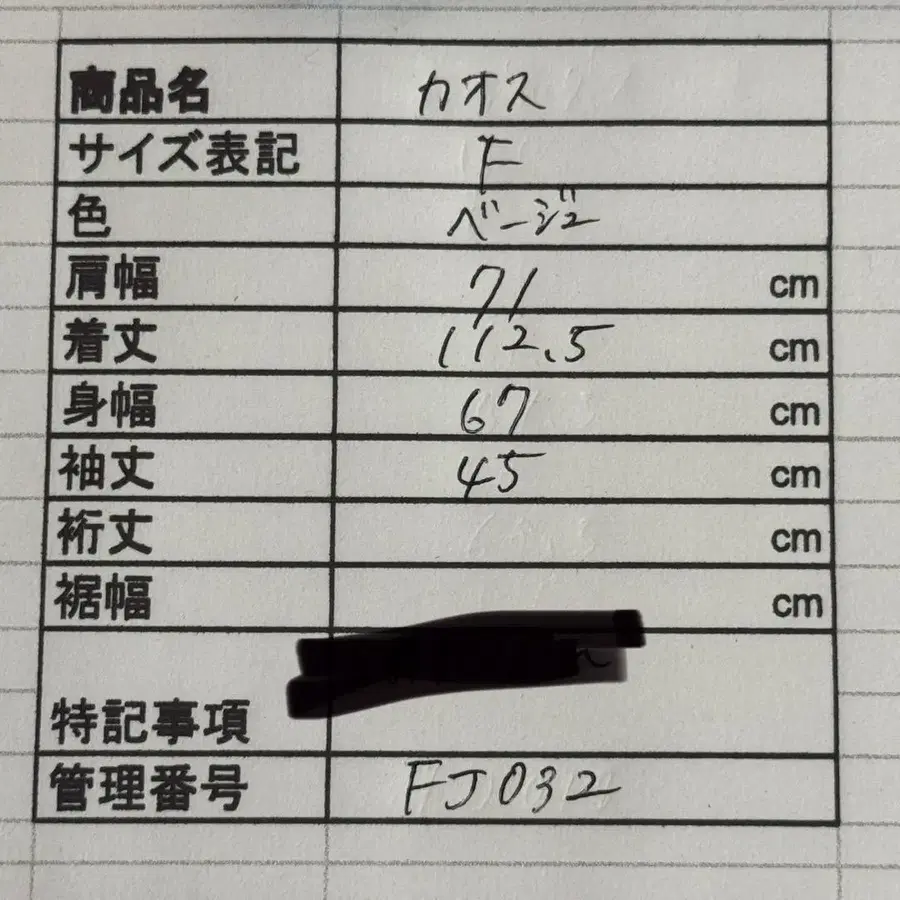 商品名 カオス
サイズ表記 F
色 ベージュ
肩幅 71 cm
着丈 112.5 cm
身幅 67 cm
袖丈 45 cm
裄丈 cm
裾幅 cm
特記事項
管理番号 FJ032